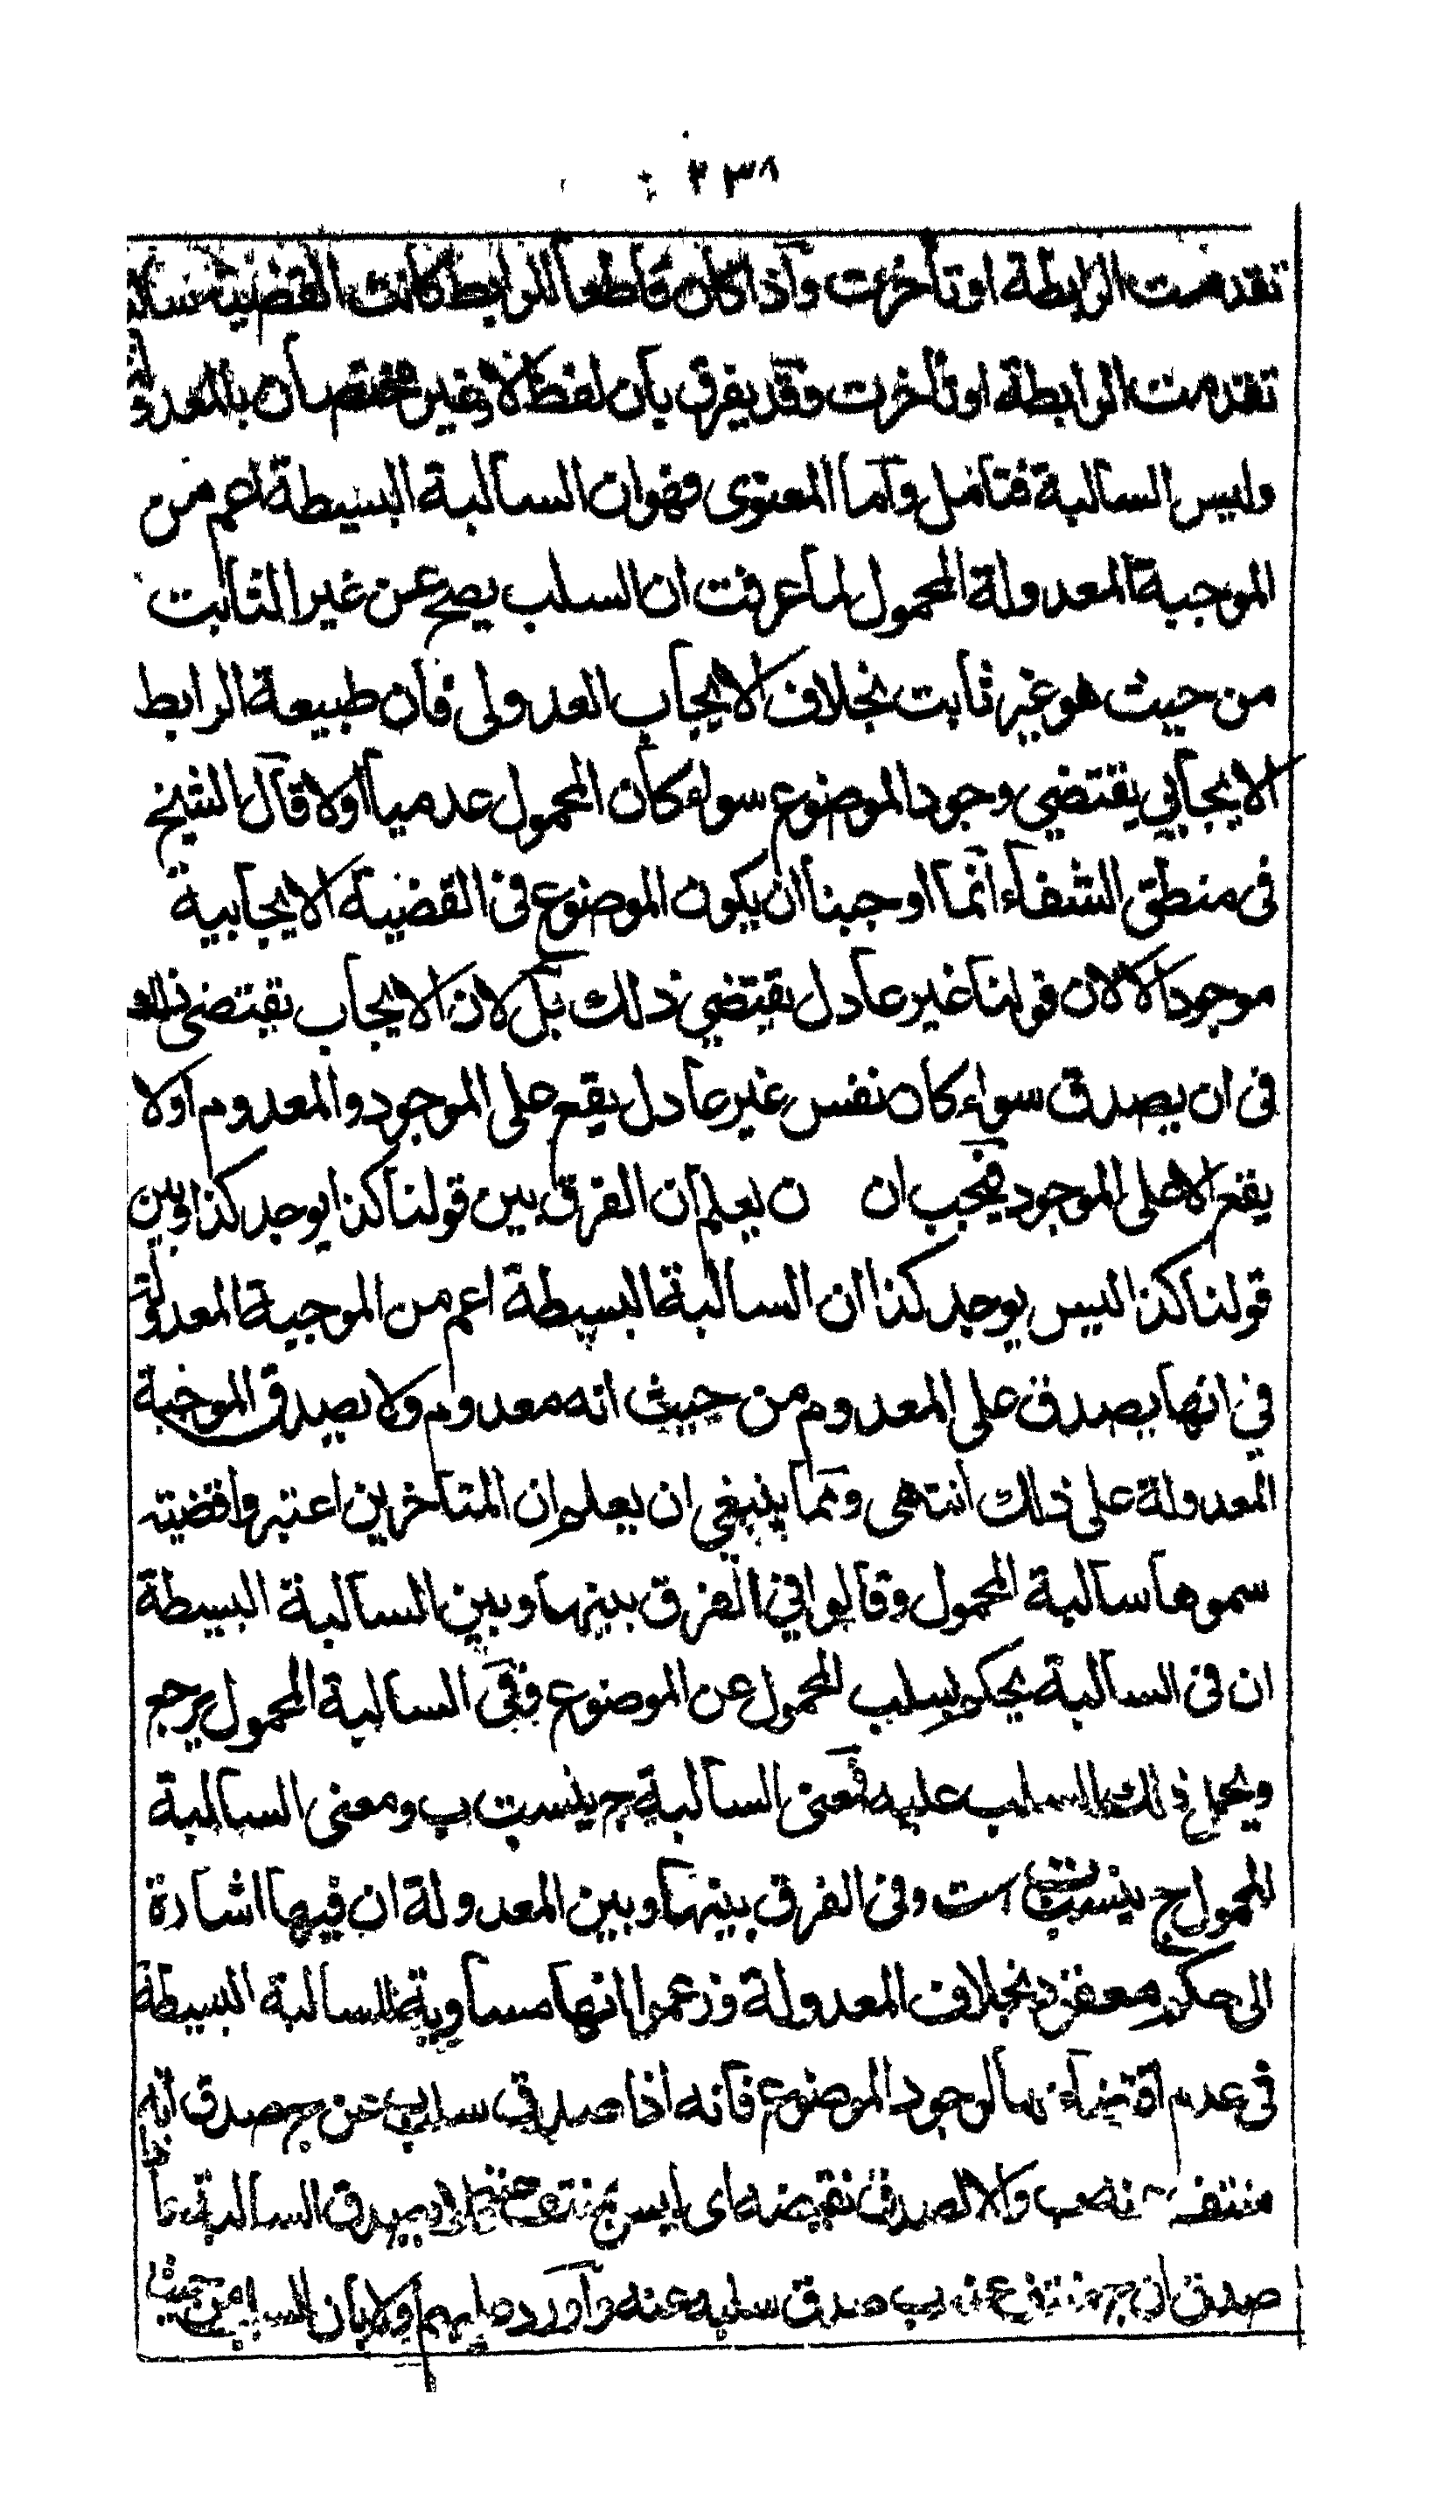 ٢٣٨
تقدمت الرابطة او تأخرت وآذا كان قاطعاً للرابط كانت القضية سالبة
تقدمت الرابطة او تأخرت وقد يفرق بأن لفظ لا وغير مختصان بالعدول
وليس السالبة فتأمل وآما المعنوى فهو ان السالبة البسيطة اعم من
الموجبة المعدولة المحمول لما عرفت ان السلب يصح عن غير الثابت
من حيث هو غير ثابت بخلاف الايجاب العدولى فان طبيعة الرابط
الايجابي يقتضي وجود الموضوع سواء كان المحمول عدمياً اولا قال الشيخ
فى منطق الشفاء انما اوجبنا ان يكون الموضوع فى القضية الايجابية
موجودا لا لان قولنا غير عادل يقتضي ذلك بل لان الايجاب يقتضى ذلك
فى ان يصدق سواء كان نفس غير عادل يقع على الموجود والمعدوم اولا
يقع الا على الموجود فيجب ان ن يعلم ان الفرق بين قولنا كذا يوجد كذا وبين
قولنا كذا ليس يوجد كذا ان السالبة البسيطة اعم من الموجبة المعدولة
في انها يصدق على المعدوم من حيث انه معدوم ولا يصدق الموجبة
المعدولة على ذلك انتهى ومما ينبغي ان يعلم ان المتأخرين اعتبروا قضية
سموها سالبة المحمول وقالوا في الفرق بينها وبين السالبة البسيطة
ان فى السالبة يحكم بسلب المحمول عن الموضوع وفى السالبة المحمول يرجع
ويحمل ذلك السلب عليه فمعنى السالبة ج نيست ب ومعنى السالبة
المحمول ج نيست است وفى الفرق بينها وبين المعدولة ان فيها اشارة
الى حكم معقود بخلاف المعدولة وزعموا انها مساوية للسالبة البسيطة
فى عدم اقتضائها لوجود الموضوع فانه اذا صدق سلب ب عن ج صدق انه
منتف عنه ب والا لصدق نقيضه اى ليس منتف عنه فلا يصدق السالبة
صدق ان ج منتف عنه ب صدق سلبه عنه وآورد عليهم اولا بان السلب من حيث